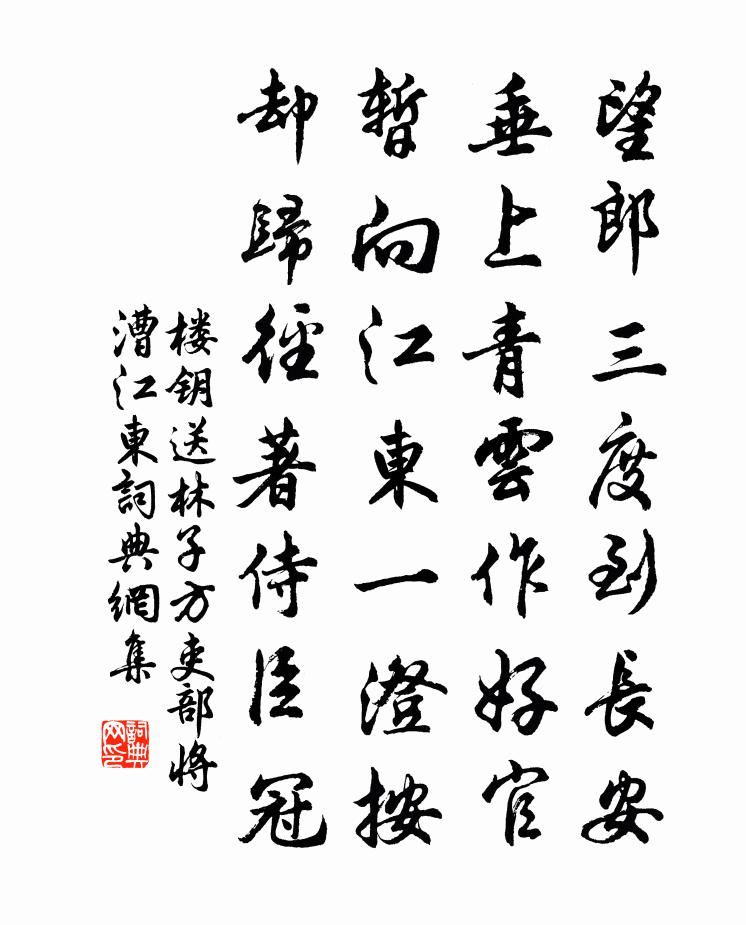 望郎三度到長安
垂上青雲作好官
暫向江東一澄按
却歸徑著侍臣冠
楼钥送林子方吏部将
漕江東詞典網集
詞典網印